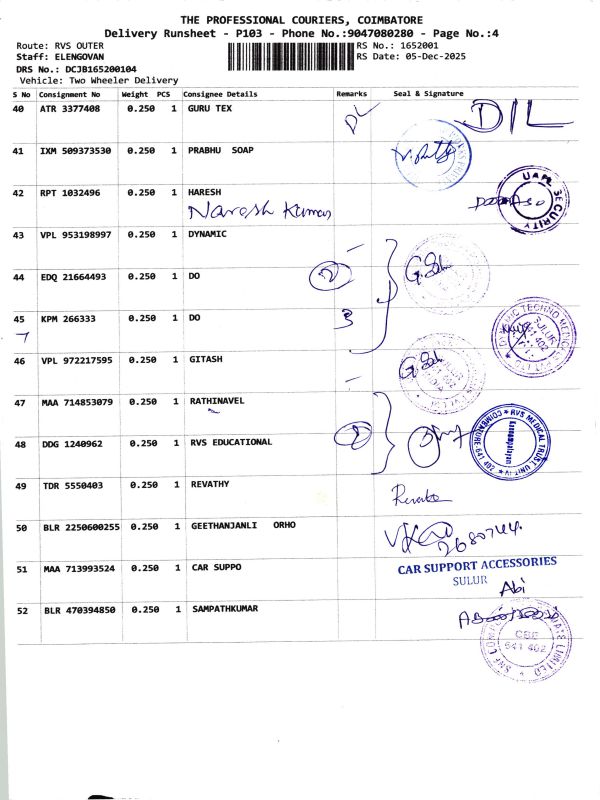 THE PROFESSIONAL COURIERS, COIMBATORE
Delivery Runsheet - P103 - Phone No.:9047080280 - Page No.:4
Route: RVS OUTER
RS No.: 1652001
Staff: ELENGOVAN
RS Date: 05-Dec-2025
DRS No.: DCJB165200104
Vehicle: Two Wheeler Delivery
S No Consignment No Weight PCS Consignee Details Remarks Seal & Signature
40 ATR 3377408 0.250 1 GURU TEX DL DIL
41 IXM 509373530 0.250 1 PRABHU SOAP
42 RPT 1032496 0.250 1 HARESH
Naresh Kumar
UAPL SECURITY
43 VPL 953198997 0.250 1 DYNAMIC
44 EDQ 21664493 0.250 1 DO 2
45 KPM 266333 0.250 1 DO 3
7
DYNAMIC TECHNO MEDICALS PVT LTD
SULUR
641 402
46 VPL 972217595 0.250 1 GITASH
47 MAA 714853079 0.250 1 RATHINAVEL
48 DDG 1240962 0.250 1 RVS EDUCATIONAL 2
RVS MEDICAL TRUST UNIT-IV
Kannampalayan
COIMBATORE-641 402
49 TDR 5550403 0.250 1 REVATHY
50 BLR 2250600255 0.250 1 GEETHANJANLI ORHO
51 MAA 713993524 0.250 1 CAR SUPPO
CAR SUPPORT ACCESSORIES
SULUR
Abi
52 BLR 470394850 0.250 1 SAMPATHKUMAR
CBE
641 402